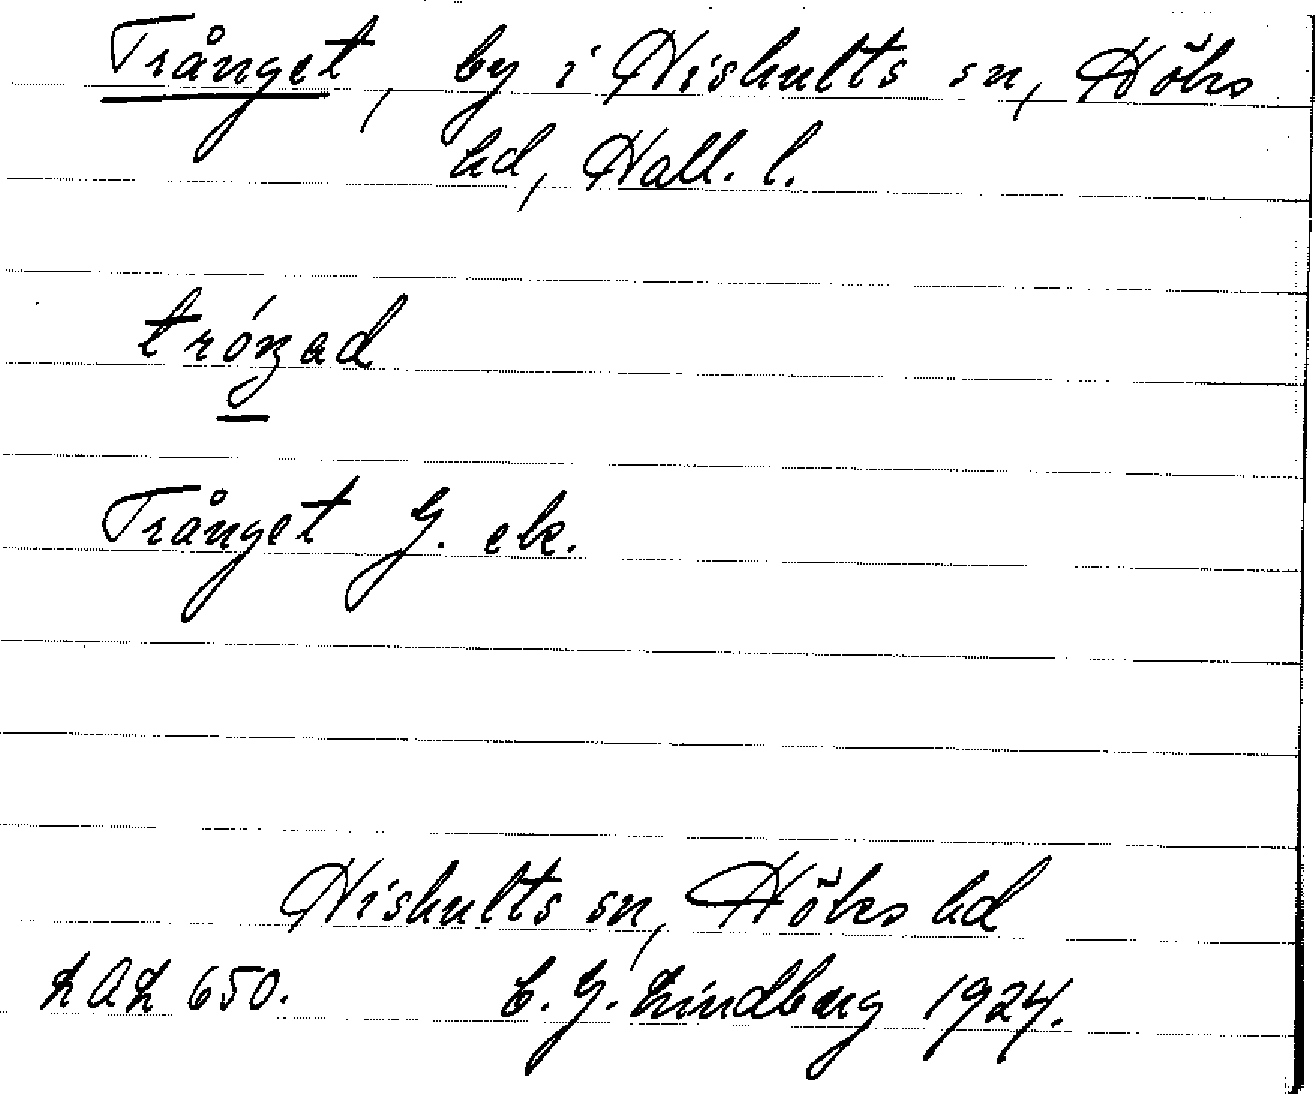 Trånget, by i Hishults sn, Höks
hd, Hall. l.
tróŋad
Trånget G. ek.
Hishults sn, Höks hd
LAL 650. C. G. Lindberg 1924.